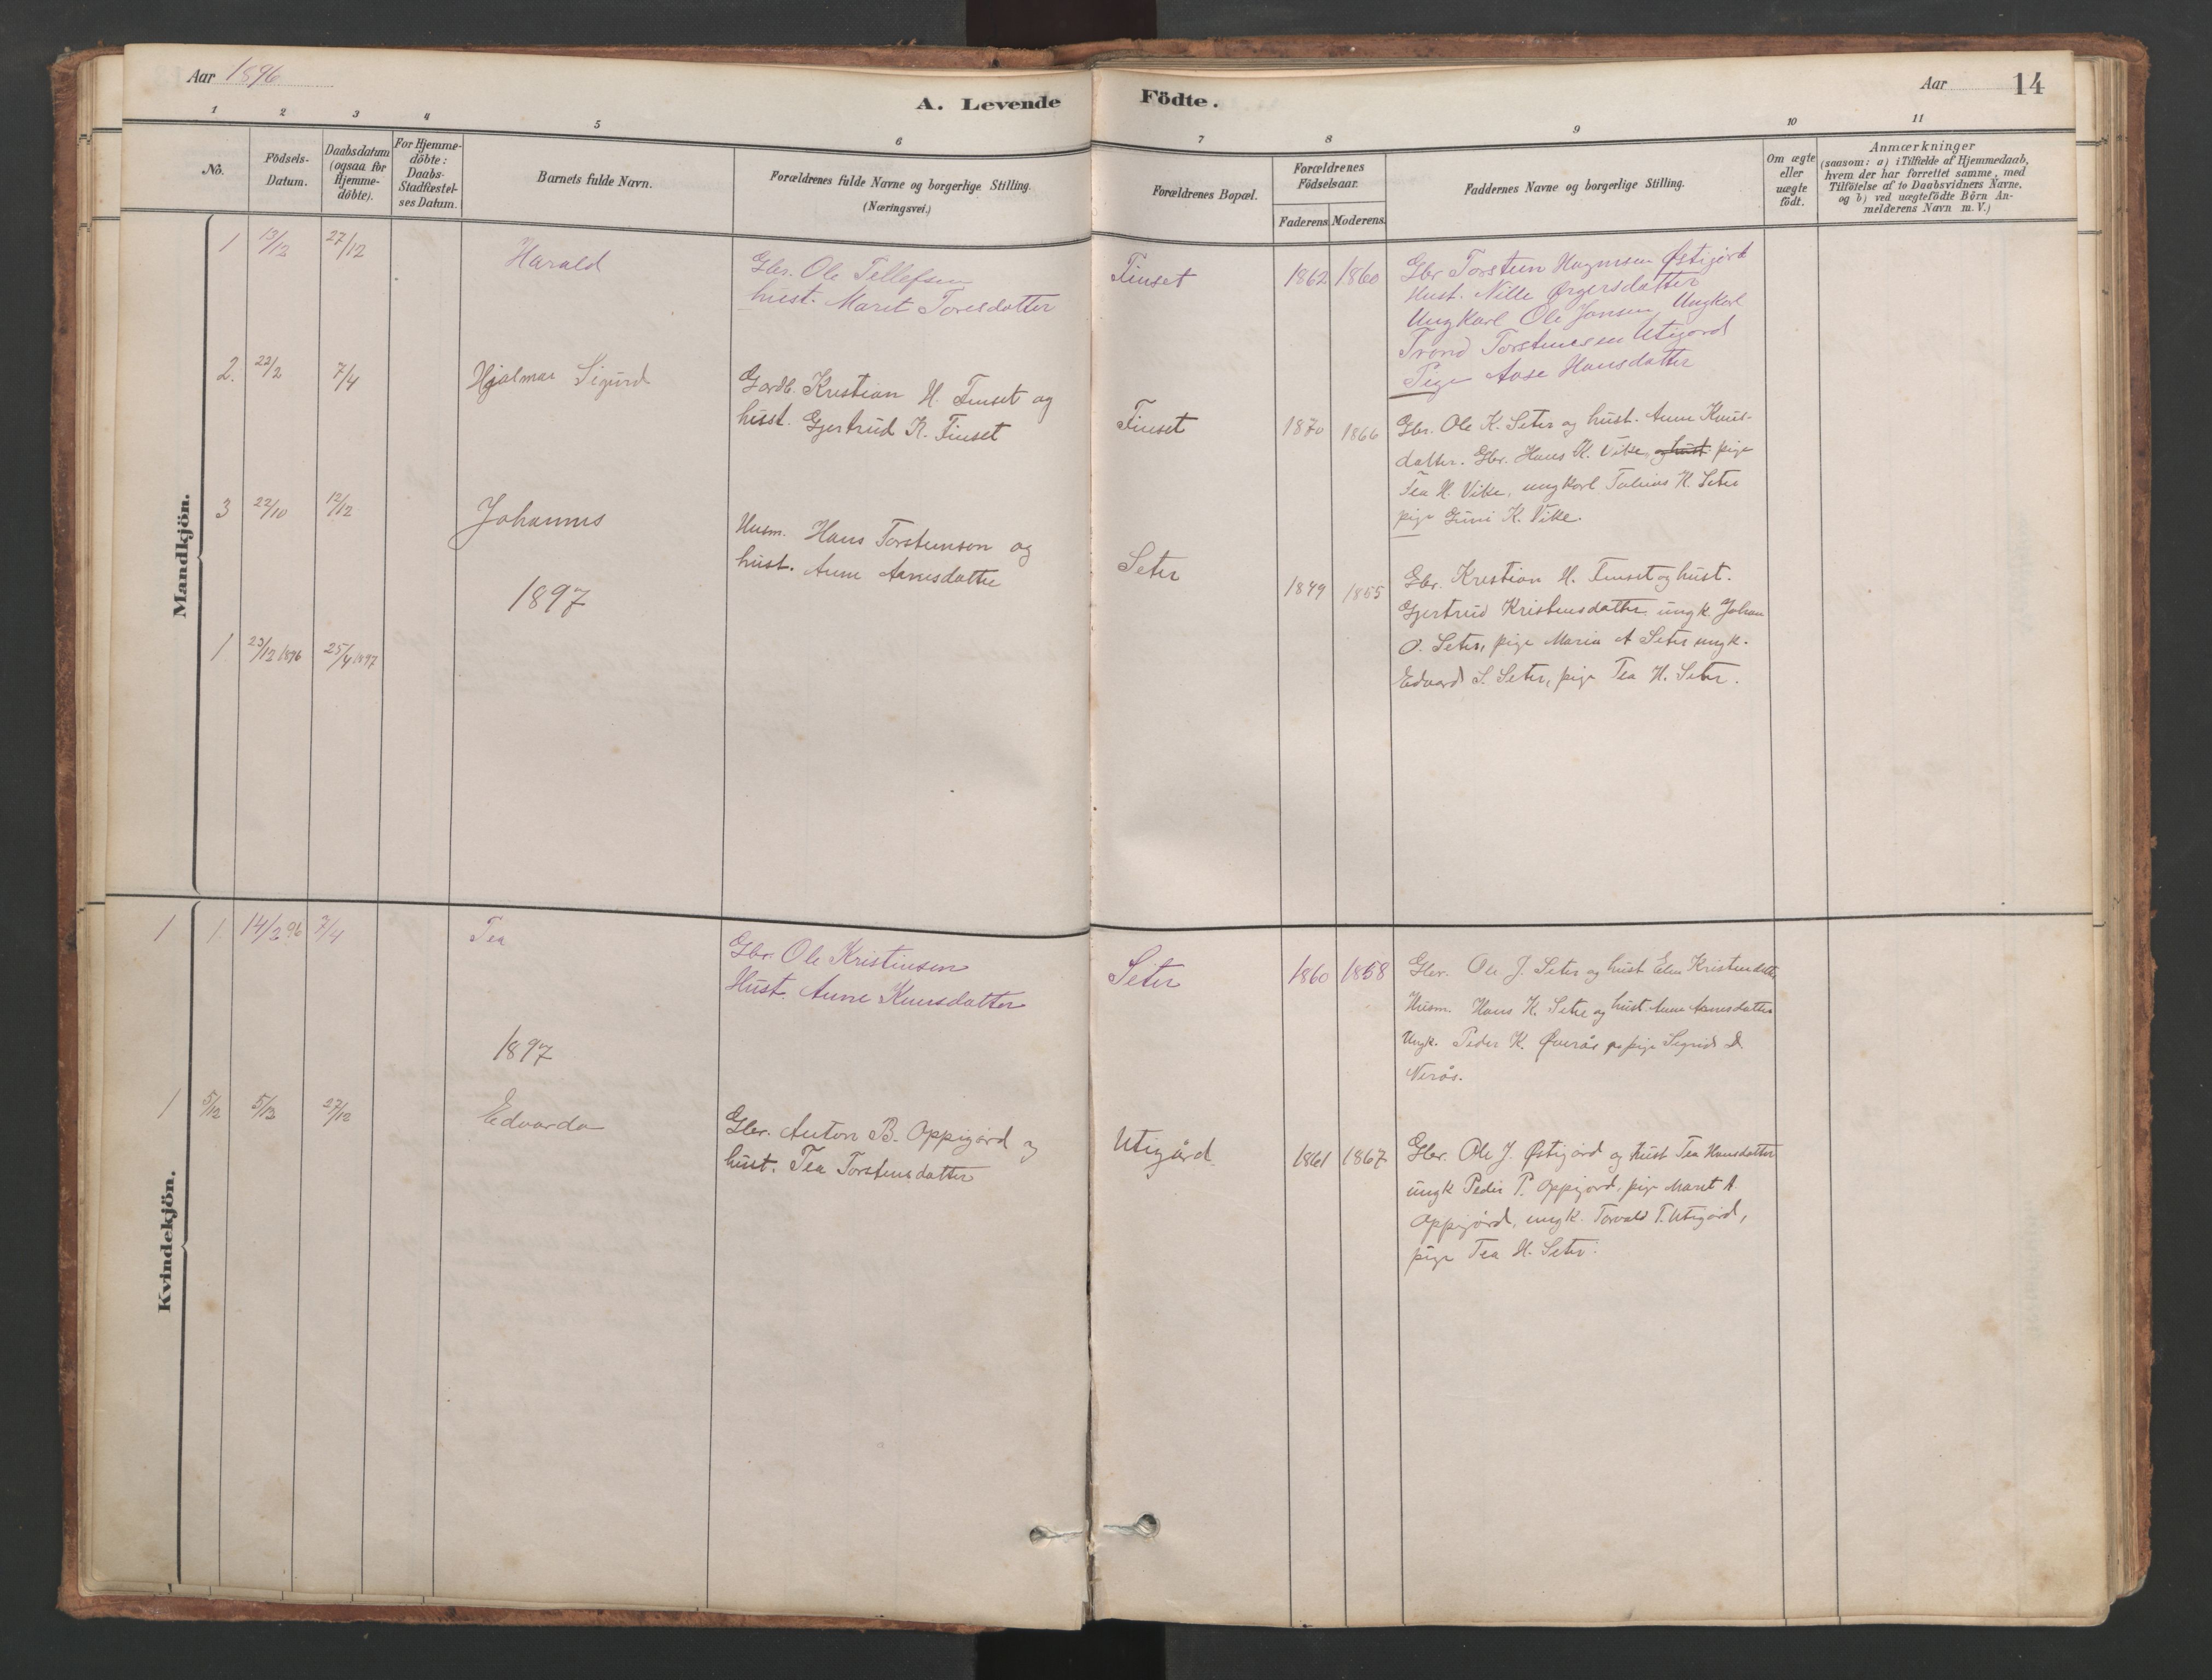 Aar 1896
A. Levende Födte.
Aar
14
1 2 3 4 5 6 7 8 9 10 11
No.
Födsels-
Datum.
Daabsdatum
(ogsaa for
Hjemme-
döbte).
For Hjemme-
döbte:
Daabs-
Stadfæstel-
ses Datum.
Barnets fulde Navn.
Forældrenes fulde Navne og borgerlige Stilling.
(Næringsvei.)
Forældrenes Bopæl.
Forældrenes
Födselsaar.
Faderens Moderens
Faddernes Navne og borgerlige Stilling.
Om ægte
eller
uægte
födt.
Anmærkninger
(saasom: a) i Tilfælde af Hjemmedaab,
hvem der har forrettet samme, med
Tilföielse af to Daabsvidners Navne,
og b) ved uægtefödte Börn An-
melderens Navn m. V.)
Mandkjön.
1 13/12 27/12 Harald
Gbr. Ole Tellefsen
hust. Marit Toresdatter
Tinset 1862 1860
Gbr Torsten Østigård
Hust. Nille
Ungkarl Ole Jonsen Ungkarl
Trond Torstensen Utigård
Pige Aase Hansdatter
2. 22/2 7/4 Hjalmar Sigurd
Gardb. Kristian H. Finset og
hust. Gjertrud K. Finset
Finset 1870 1866
Gbr. Ole K. Seter og hust. Anne Knus-
datter. Gbr. Hans K. Vike, og hust. pige
Tea H. Vike, ungkarl H. Seter
pige Guni K. Vike.
3 22/10 12/12 Johannes
Husm. Hans Torstenson og
hust. Anne Arnesdatter
Seter 1849 1855
Gbr. Kristian H. Finset og hust.
Gjertrud Kristensdatter, ungk. Johan
O. Seter, pige Maria A Seter ungk.
Edvard S. Seter, pige Tea H. Seter.
1897
1. 23/12 1896 25/4 1897
Kvindekjön.
1 1. 14/2 96 7/4 Tea
Gbr. Ole Kristensen
Hust. Anne Knusdatter
Seter 1860 1858
Gbr. Ole J. Seter og hust Elen Kristensdatter
Husm. Hans K. Setre og hust. Anne Arnesdatter
Ungk. Peder K. Øverås pige Sigrid D.
Nerås.
1897
1 5/12 5/12 27/12 Edvarda
Gbr. Anton B. Oppigård og
hust. Tea Torstensdatter
Utigård 1861 1867
Gbr. Ole J. Østigård og hust Tea Hansdatter
ungk Peder P. Oppigård, pige Marit A.
Oppigård, ungk. Torvald T. Utigård,
pige Tea H. Seter.